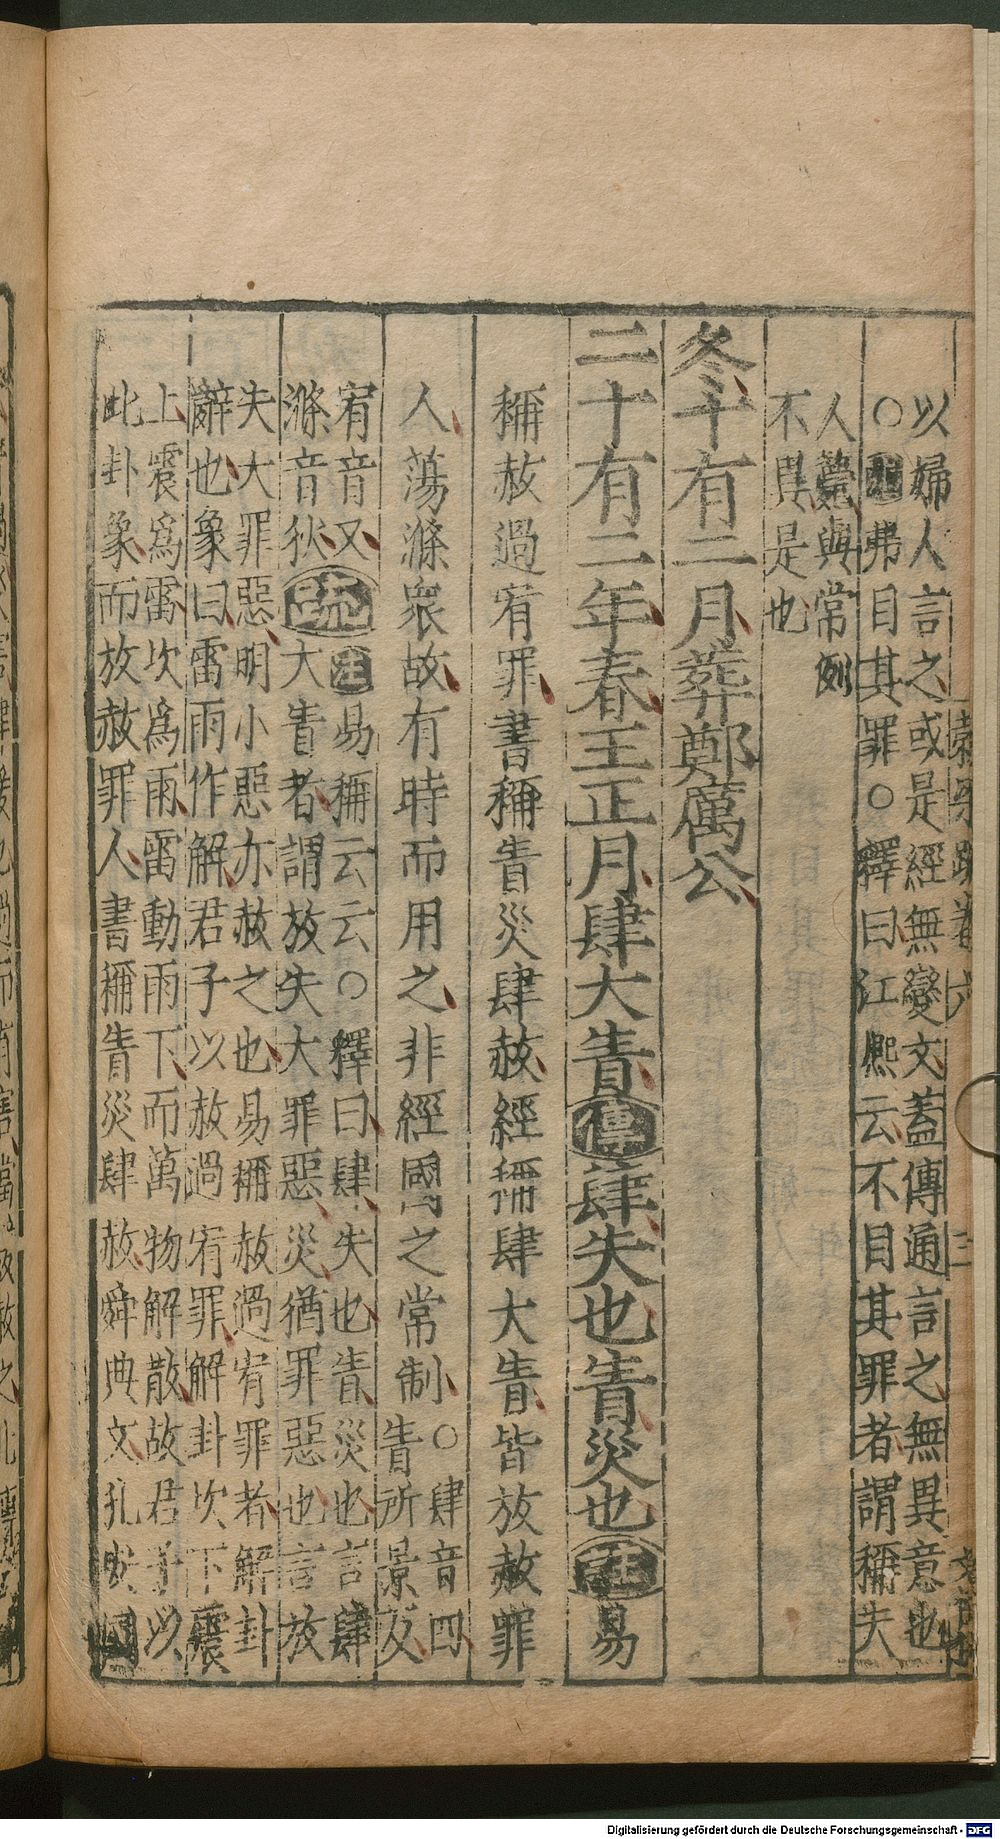 以婦人言之或是經無變文蓋傳通言之無異意也
○注弗目其罪○釋曰江熙云不目其罪者謂稱失
人薨與常例
不異是也
冬十有二月葬鄭厲公
二十有二年春王正月肆大眚傳肆失也眚災也註易
稱赦過宥罪書稱眚災肆赦經稱肆大眚皆放赦罪
人蕩滌衆故有時而用之非經國之常制○肆音四
眚所景反
宥音又
滌音狄疏注易稱云云○釋曰肆失也眚災也言肆
大眚者謂放失大罪惡災猶罪惡也言放
失大罪惡明小惡亦赦之也易稱赦過宥罪者解卦
辭也象曰雷雨作解君子以赦過宥罪解卦坎下震
上震爲雷坎爲雨雷動雨下而萬物解散故君子以
此卦象而放赦罪人書稱眚災肆赦舜典文孔安國
Digitalisierung gefördert durch die Deutsche Forschungsgemeinschaft - DFG